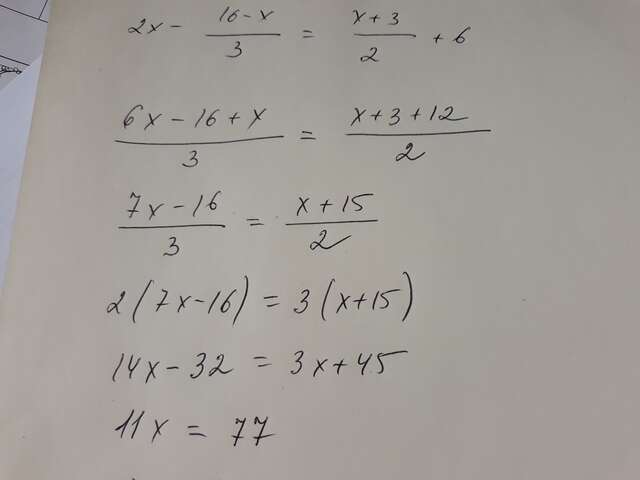 2x - (16-x)/3 = (x+3)/2 + 6
(6x-16+x)/3 = (x+3+12)/2
(7x-16)/3 = (x+15)/2
2(7x-16) = 3(x+15)
14x-32 = 3x+45
11x = 77